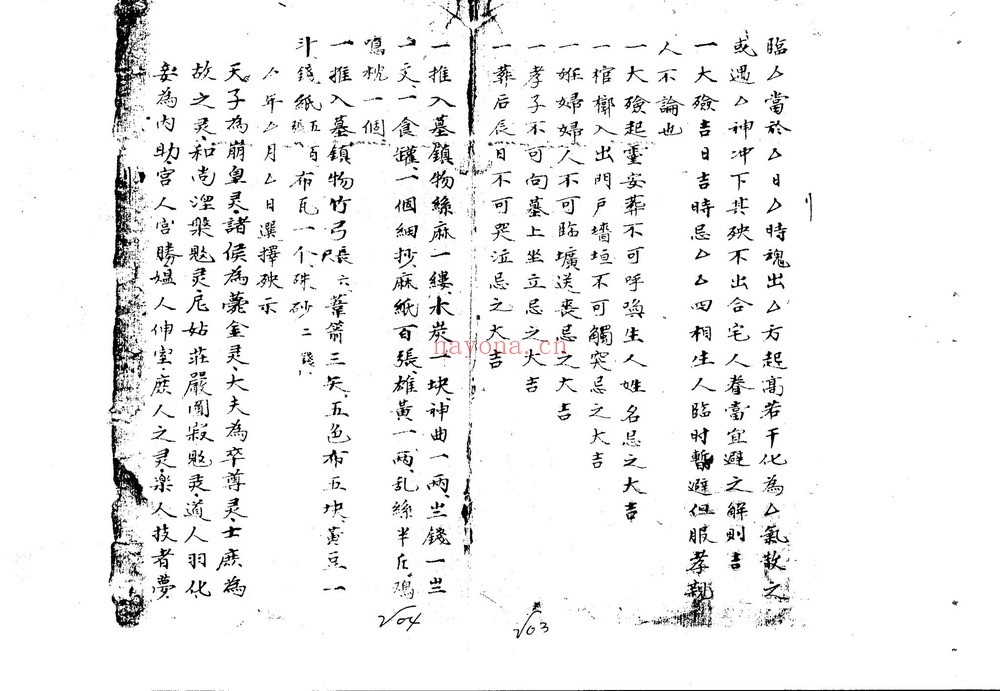 臨厶當於厶日厶時魂出厶方起高若干化為厶氣散之
或遇厶神冲下其殃不出合宅人眷當宜避之解則吉
一大殮吉日吉時忌厶厶四相生人臨时暫避但服孝親
人不論也
一大殮起靈安葬不可呼喚生人姓名忌之大吉
一棺槨入出門戶墻垣不可觸突忌之大吉
一妊婦婦人不可臨壙送喪忌之大吉
一孝子不可向墓上坐立忌之大吉
一葬后辰日不可哭泣忌之大吉
√03
一推入墓鎮物絲麻一縷、木炭一块、神曲一两、出錢一出
文、一食罐、一個細抄麻紙百張、雄黃一两、乱絲半斤、鳴
枕一個
一推入墓鎮物竹弓長六尺、葦箭三矢、五色布五块、黃豆一
斗、錢紙五百張、布瓦一个、硃砂二錢
厶年厶月厶日選擇殃示
天子為崩皇灵、諸侯為薨金灵、大夫為卒尊灵、士庶為
故之灵、和尚涅槃覺灵、尼姑莊嚴圓寂覺灵、道人羽化
妾為内助、宫人宫勝媪人伸室、庶人之灵、樂人技者夢、
√04
nayona.cn